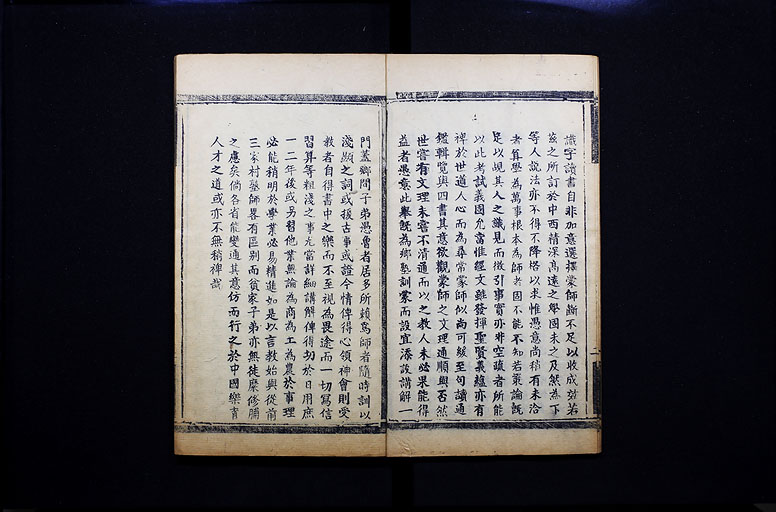 識字讀書自非加意選擇蒙師斷不足以收成效若
茲之所訂於中西精深高遠之學固未之及然為下
等人說法亦不得不降格以求惟愚意尚稍有未洽
者算學為萬事根本為師者固不能不知若策論既
足以覘其人之識見而徵引事實亦非空疏者所能
以此考試義固允當惟經文雖發揮聖賢義蘊亦有
裨於世道人心而為尋常蒙師似尚可緩至句讀通
鑑輯覽與四書其意欲觀蒙師之文理通順與否然
世嘗有文理未嘗不清通而以之教人未必果能得
益者愚意此舉既為鄉塾訓蒙而設宜添設講解一
門蓋鄉間子弟愚魯者居多所賴為師者隨時訓以
淺顯之詞或援古事或證今情俾得心領神會則受
教者自得書中之樂而不至視為畏途而一切寫信
習算等粗淺之事尤當詳細講解俾得切於日用庶
一二年後或另習他業無論為商為工為農於事理
必能稍明於學業必易精進如是以言教始與從前
三家村塾師畧有區別而貧家子弟亦無徒糜修脯
之慮矣倘各省能變通其意仿而行之於中國樂育
人才之道或亦不無稍裨哉